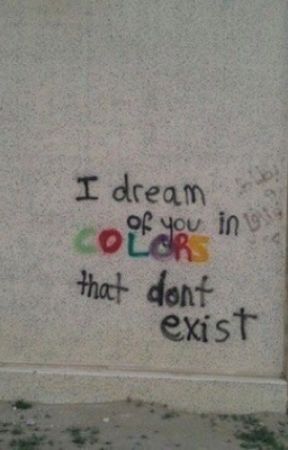 I dream
of you in
COLORS
that dont
exist